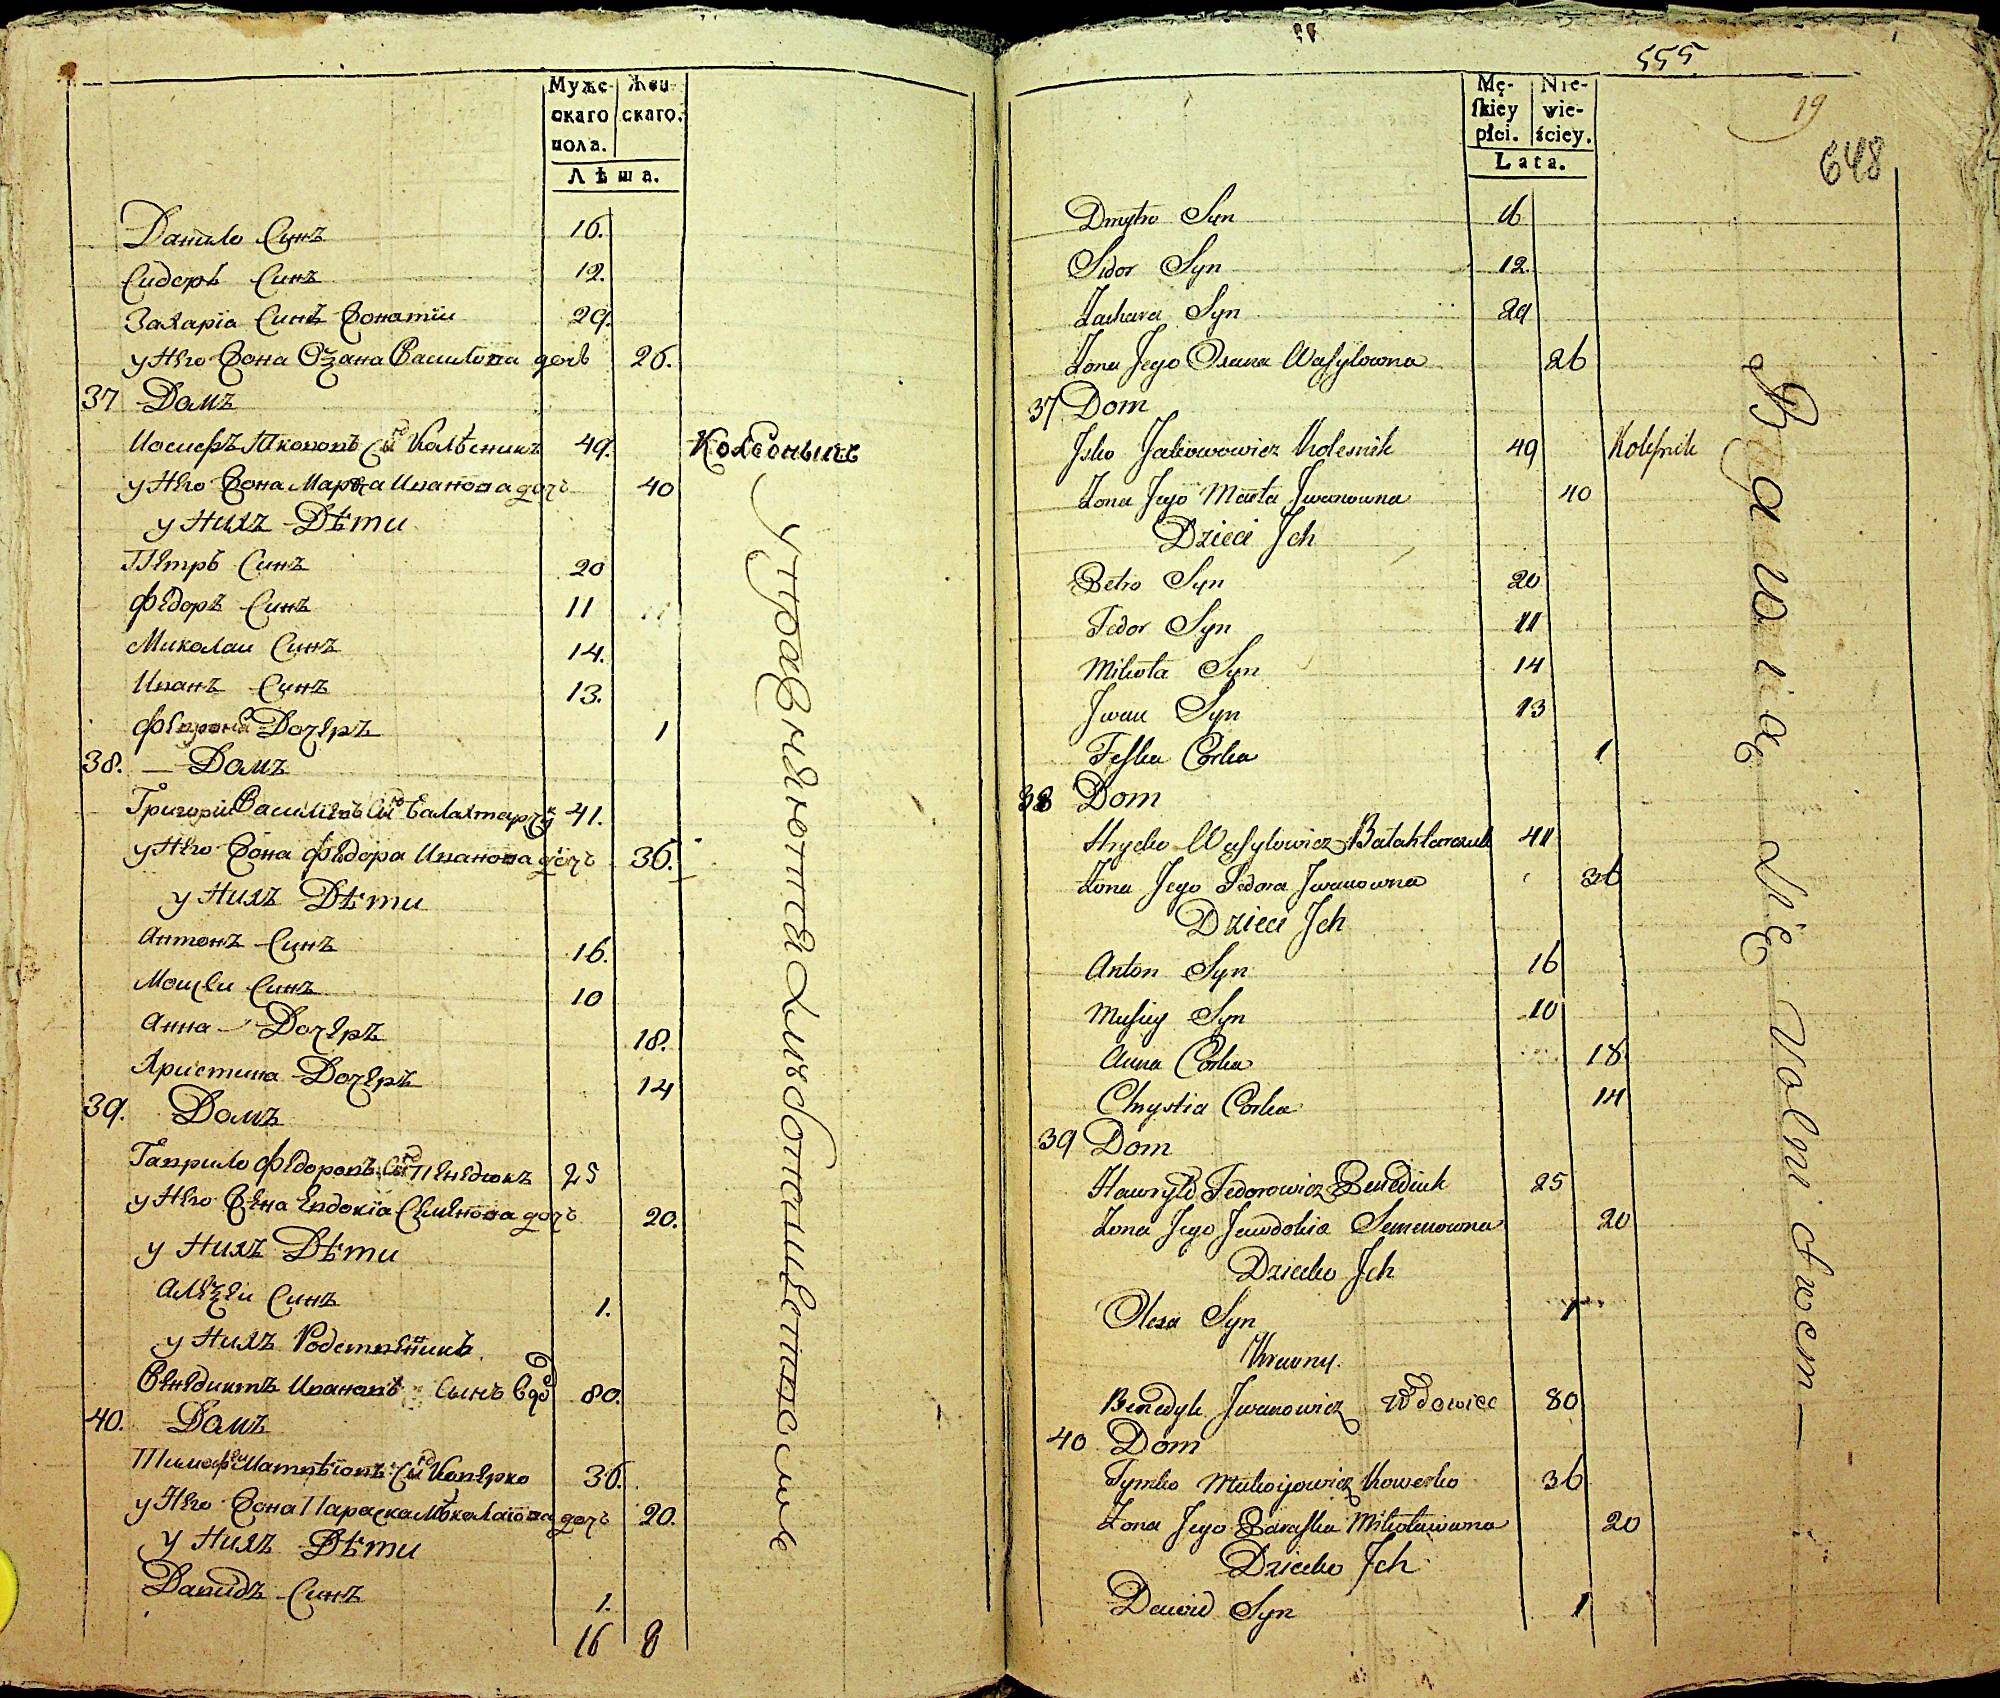 Муже-
скаго
пола.
Жен-
скаго.
Лѣта.
Данило Синъ 16.
Сидоръ Синъ 12.
Захаріа Синъ Жонатіи 29.
у Него Жона Оѯана Василова дочь 26.
37 Домъ
Иосифъ Якововъ Сы Колѣсникъ 49. Колесникъ
у Него Жона Марѳа Иванова дочь 40
у Нихъ Дѣти
Петръ Синъ 20
Федоръ Синъ 11
Миколаи Синъ 14.
Иванъ Синъ 13.
Дочеръ 1
38. Домъ
Григорій Василіевъ 41.
у Него Жона Федора Иванова дочь 36.
у Нихъ Дѣти
Антонъ Синъ 16.
Мойсеи Синъ 10
Анна Дочеръ 18.
Христина Дочеръ 14
39. Домъ
Гаврило Федоровъ Сы Пенедюкъ 25
у Него Жена Евдокіа Семенова дочь 20.
у Нихъ Дѣти
Алеѯеи Синъ 1.
у Нихъ Родственикъ
Венедиктъ Ивановъ Сынъ вдо 80.
40. Домъ
Тимофеи Матвѣіовъ Сы Коверко 36.
у Него Жона Параска Мѣколаіова дочь 20.
у Нихъ Дѣти
Давидъ Синъ 1.
16 8
555
19
648
Mę-
skiey
płci.
Nie-
wie-
ściey.
Lata.
Dmytro Syn 16
Sidor Syn 12
Zachara Syn 29
Żona Jego Oxana Wasylowna 26
37 Dom
Jsko Jakowowicz Kolesnik 49 Kolesnik
Żona Jego Marta Jwanowna 40
Dzieci Jch
Petro Syn 20
Fedor Syn 11
Mikoła Syn 14
Jwan Syn 13
Feska Corka 1
38 Dom
Hryćko Wasylowicz Bałakłarczuk 41
Żona Jego Fedora Jwanowna 36
Dzieci Jch
Anton Syn 16
Musiey Syn 10
Anna Corka 18
Chrystia Corka 14
39 Dom
Hawryło Fedorowicz Benediuk 25
Żona Jego Jewdokia Semenowna 20
Dziecko Jch
Olexa Syn 1
Krewny.
Benedyk Jwanowicz Wdowiec 80
40 Dom
Tymko Kowerko 36
Żona Jego Paraska Mikołaiowna 20
Dziecko Jch
Dawid Syn 1
Bawią Się Rolnictwem